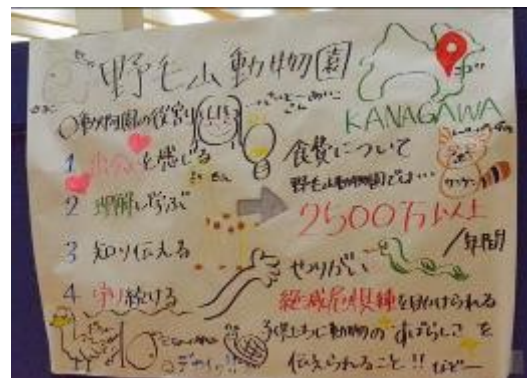 野毛山動物園
KANAGAWA
○動物園の役割り
1 出会を感じる
2 理解し学ぶ
3 知り伝える
4 守り続ける
食費について
野毛山動物園では…
2500万以上
/年間
やりがい
絶滅危惧種を助けられる
子供たちに動物のすばらしさを
伝えられること!! など